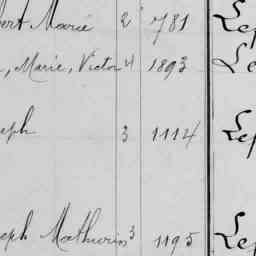 bert Marie 2 781 Lep
, Marie, Victor 4 1893 Le
seph 3 1114 Lep
seph Mathurin 3 1195 Lep